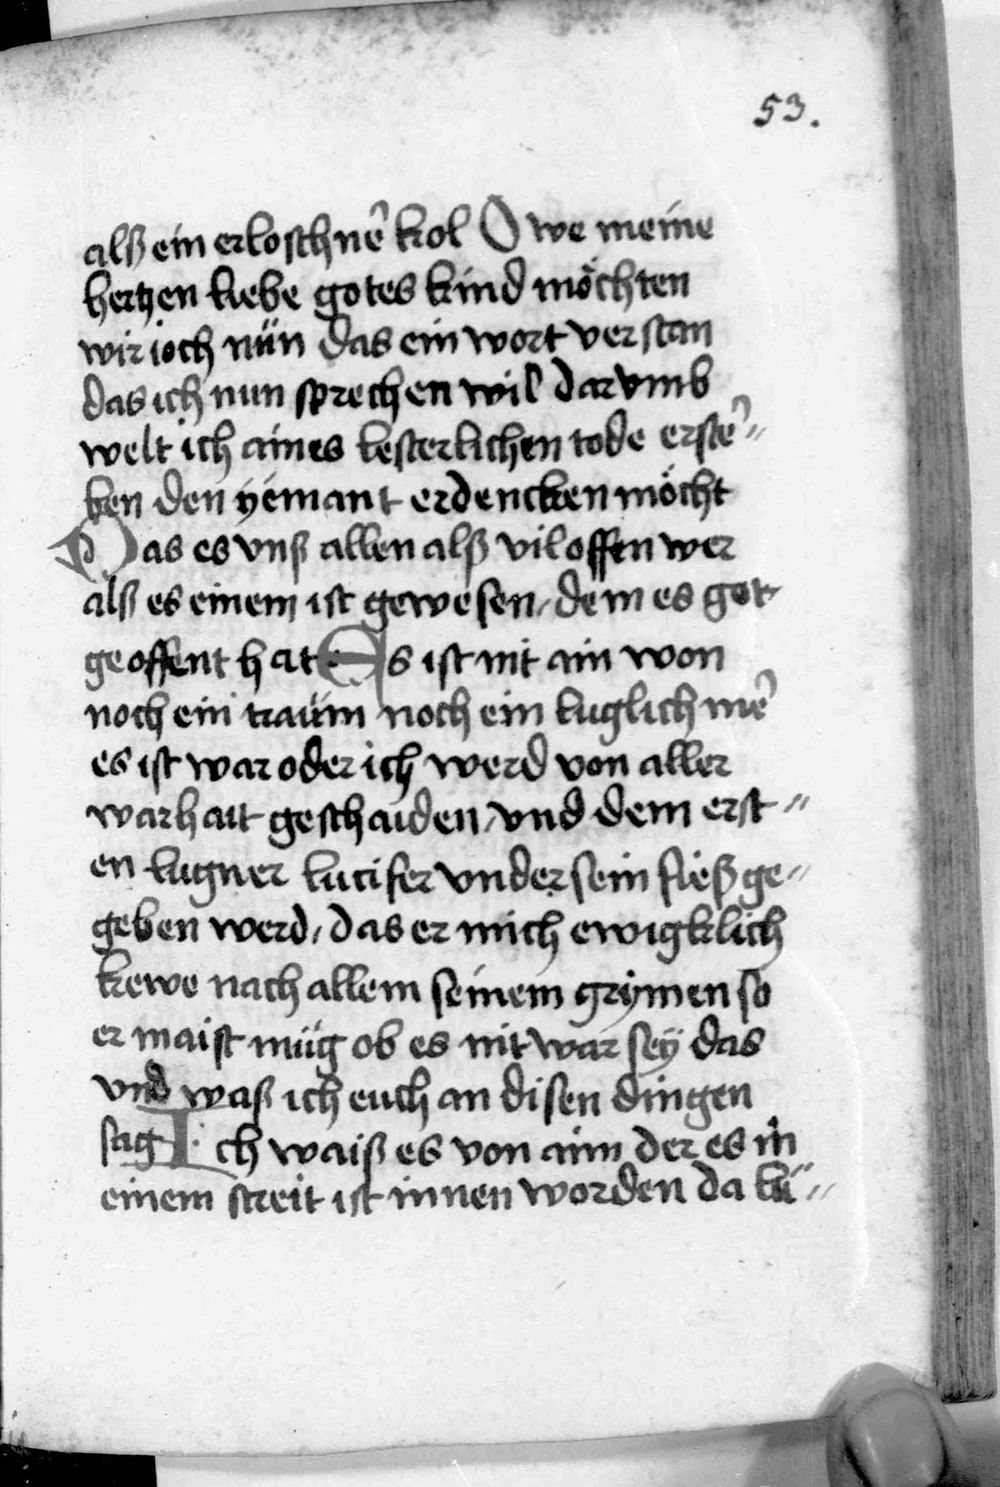 53.
alß ein erloschne᷑ kol O we meine
hertzen liebe gotes kind möchten
wir ioch nün das ein wort verstan
das ich nun sprechen wil darvmb
welt ich aines lesterlichen tode erste᷑〃
ben den yemant erdencken möcht
Das es vnß allen alß vil offen wer
alß es einem ist gewesen, dem es got
geoffent hat Es ist nit ain won
noch ein traüm noch ein luglich me᷑
es ist war oder ich werd von aller
warhait geschaiden, vnd dem erst〃
en lugner lucifer vnder sein fieß ge〃
geben werd, das er mich ewigklich
kewe nach allem seinem grymen so
er maist müg ob es nit war sey das
vnd waß ich euch an disen dingen
sag Ich waiß es von aim der es in
einem streit ist innen worden da lü〃